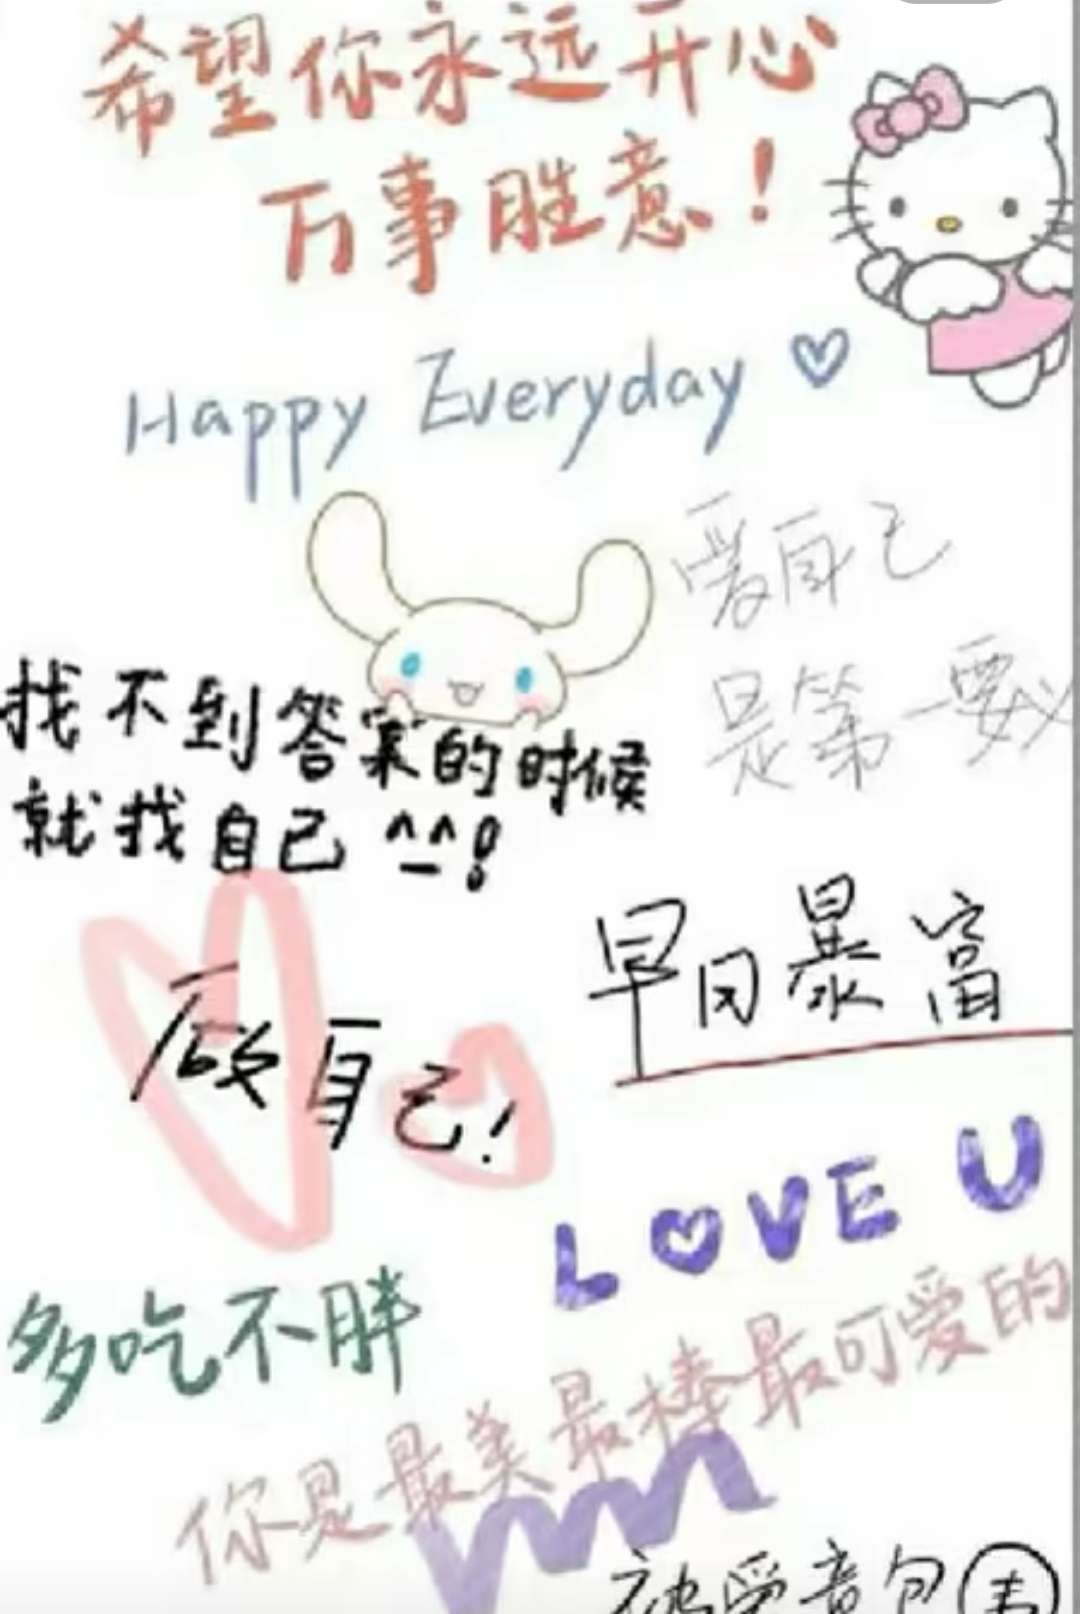 希望你永远开心
万事胜意！
Happy Everyday
爱自己
是第一要义
找不到答案的时候
就找自己 ^_^!
做自己！
早日暴富
LOVE U
多吃不胖
你是最美最棒最可爱的
被爱意包围